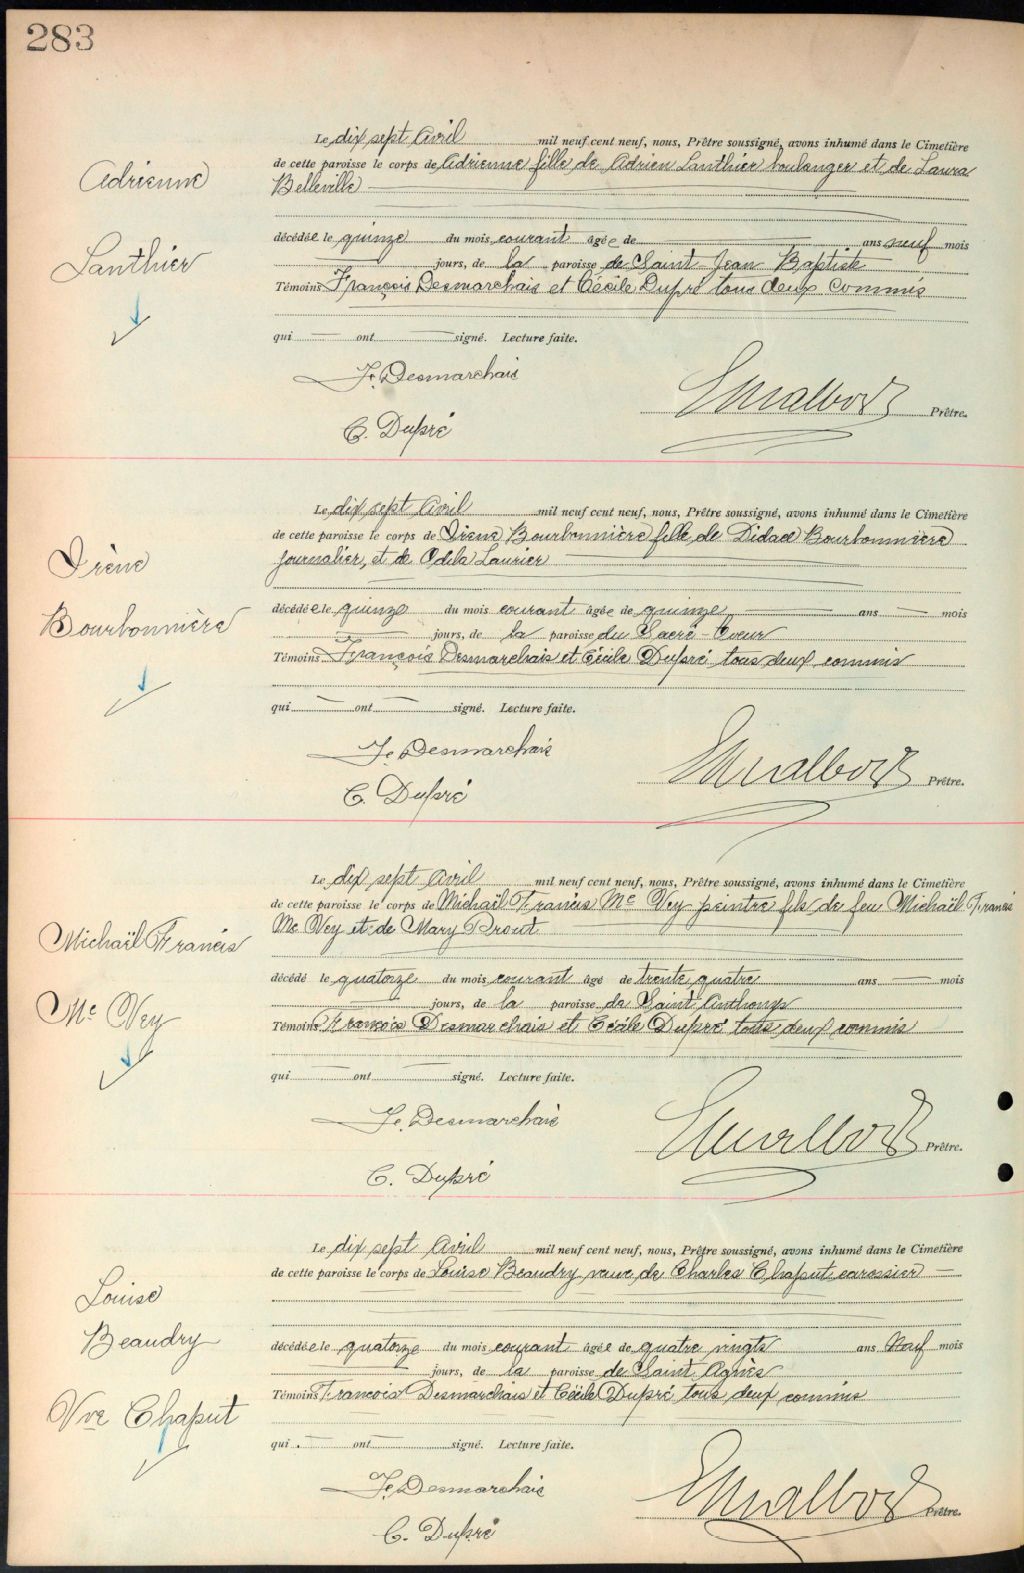 283
Adrienne
Lanthier
Le dix sept Avril mil neuf cent neuf, nous, Prêtre soussigné, avons inhumé dans le Cimetière
de cette paroisse le corps de Adrienne fille de Adrien Lanthier boulanger et de Laura
Belleville
décédée le quinze du mois courant âgée de ans neuf mois
jours, de la paroisse de Saint-Jean Baptiste
Témoins François Desmarchais et Cécile Dupré tous deux commis
qui ont signé. Lecture faite.
F. Desmarchais
C. Dupré
Prêtre.
Irène
Bourbonnière
Le dix sept Avril mil neuf cent neuf, nous, Prêtre soussigné, avons inhumé dans le Cimetière
de cette paroisse le corps de Irène Bourbonnière fille de Didace Bourbonnière
journalier, et de Odila Laurier
décédée le quinze du mois courant âgée de quinze ans mois
jours, de la paroisse du Sacré-Coeur
Témoins François Desmarchais et Cécile Dupré tous deux commis
qui ont signé. Lecture faite.
F. Desmarchais
C. Dupré
Prêtre.
Michaël Francis
Mc Vey
Le dix sept Avril mil neuf cent neuf, nous, Prêtre soussigné, avons inhumé dans le Cimetière
de cette paroisse le corps de Michaël Francis Mc Vey peintre fils de feu Michaël Francis
Mc Vey et de Mary Prout
décédé le quatorze du mois courant âgé de trente quatre ans mois
jours, de la paroisse de Saint Anthony
Témoins François Desmarchais et Cécile Dupré tous deux commis
qui ont signé. Lecture faite.
F. Desmarchais
C. Dupré
Prêtre.
Louise
Beaudry
Vve Chaput
Le dix sept Avril mil neuf cent neuf, nous, Prêtre soussigné, avons inhumé dans le Cimetière
de cette paroisse le corps de Louise Beaudry veuve de Charles Chaput carossier
décédée le quatorze du mois courant âgée de quatre vingts ans Neuf mois
jours, de la paroisse de Saint Agnès
Témoins François Desmarchais et Cécile Dupré tous deux commis
qui ont signé. Lecture faite.
F. Desmarchais
C. Dupré
Prêtre.